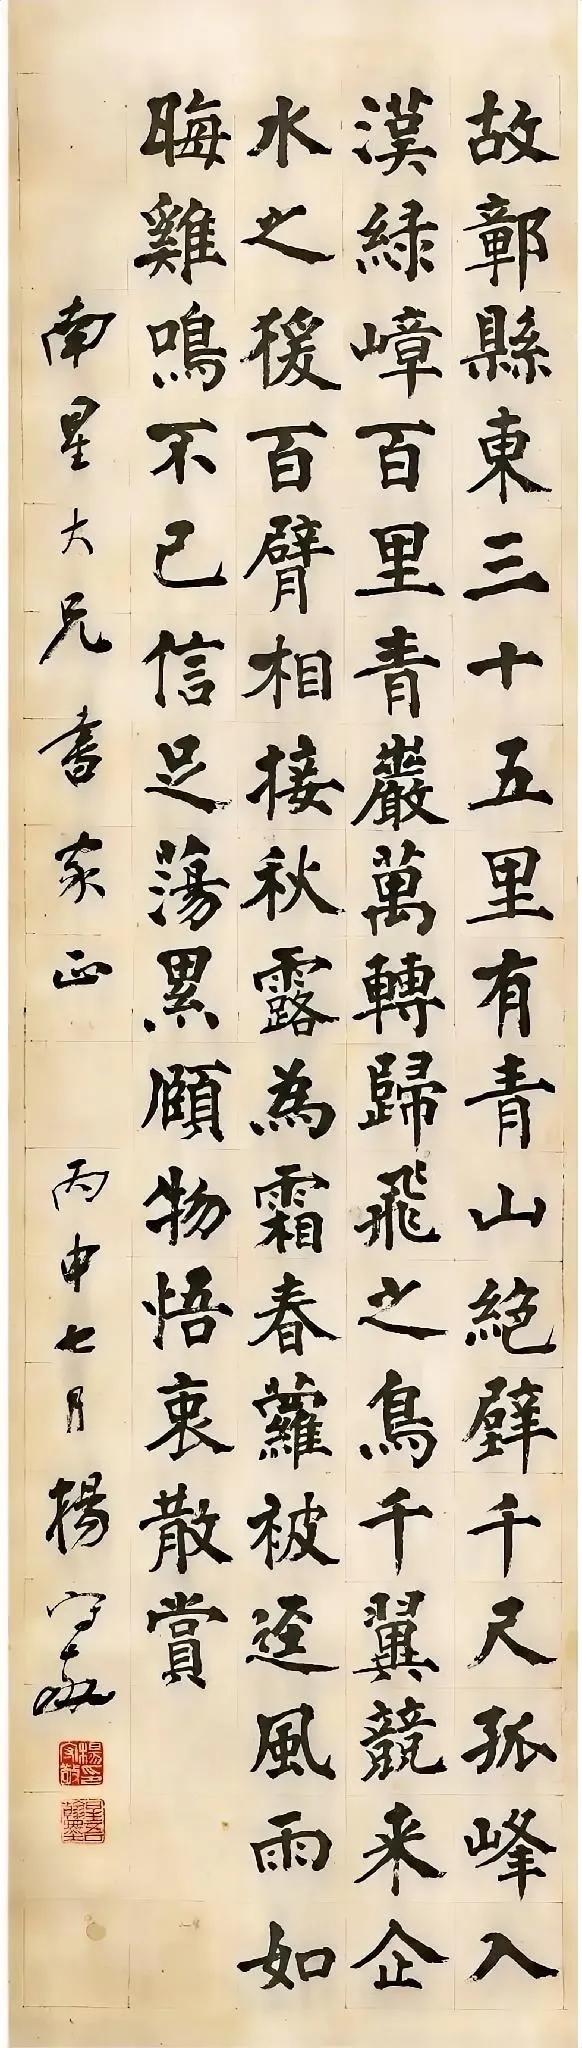 故鄣縣東三十五里有青山絶壁千尺孤峰入
漢緑嶂百里青巖萬轉歸飛之鳥千翼競来企
水之猨百臂相接秋露為霜春蘿被逕風雨如
晦雞鳴不已信足蕩累頤物悟衷散賞
南星大兄書家正 丙申七月楊守敬
楊守敬印
星吾翰墨